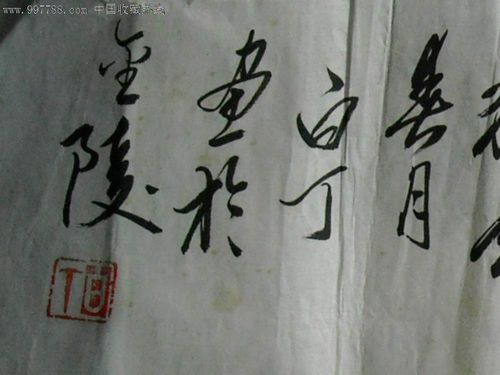 www.997788.com 中国收藏热线
春月
白丁
畫於
金陵
白丁